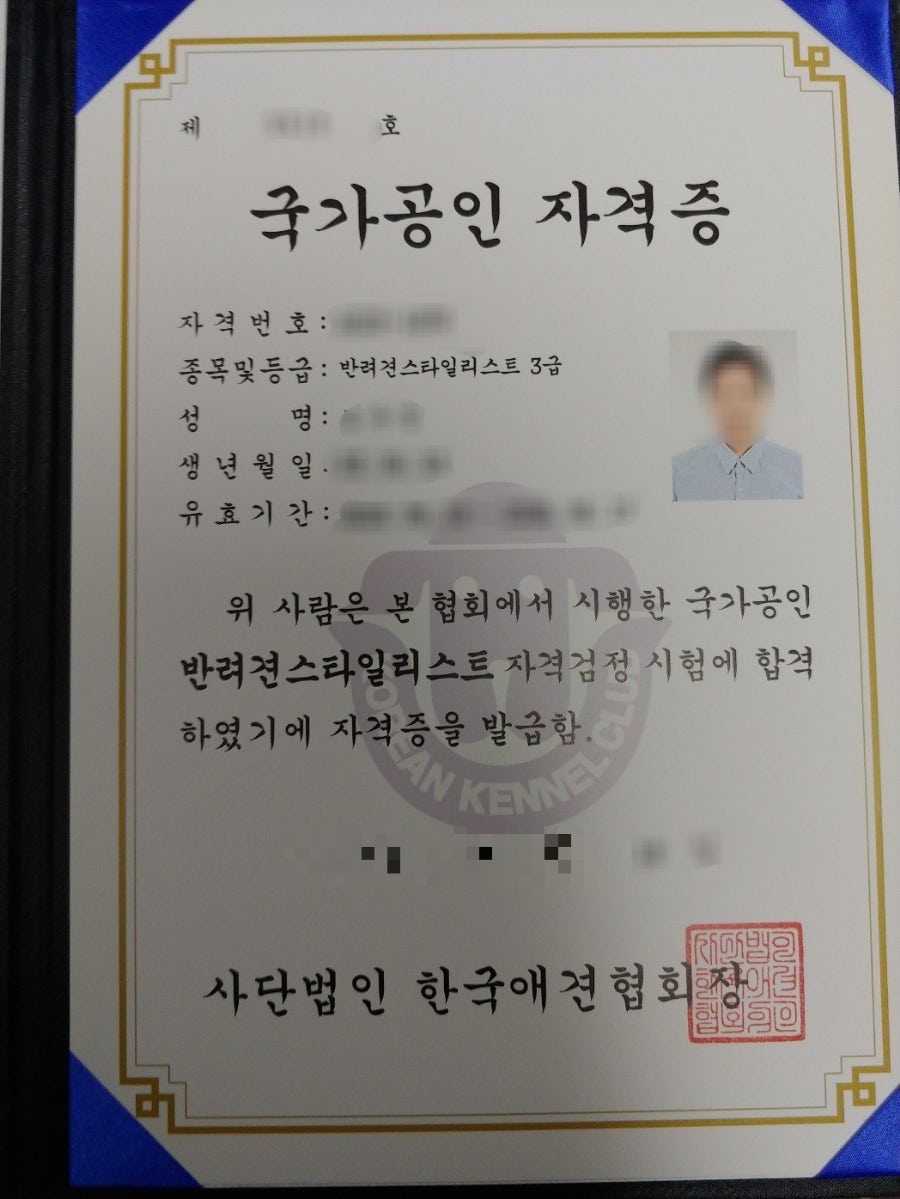 제 호
국가공인 자격증
자격번호 :
종목및등급 : 반려견스타일리스트 3급
성 명 :
생년월일 .
유효기간 :
위 사람은 본 협회에서 시행한 국가공인
반려견스타일리스트 자격검정 시험에 합격
하였기에 자격증을 발급함.
KOREAN KENNEL CLUB
사단법인 한국애견협회장